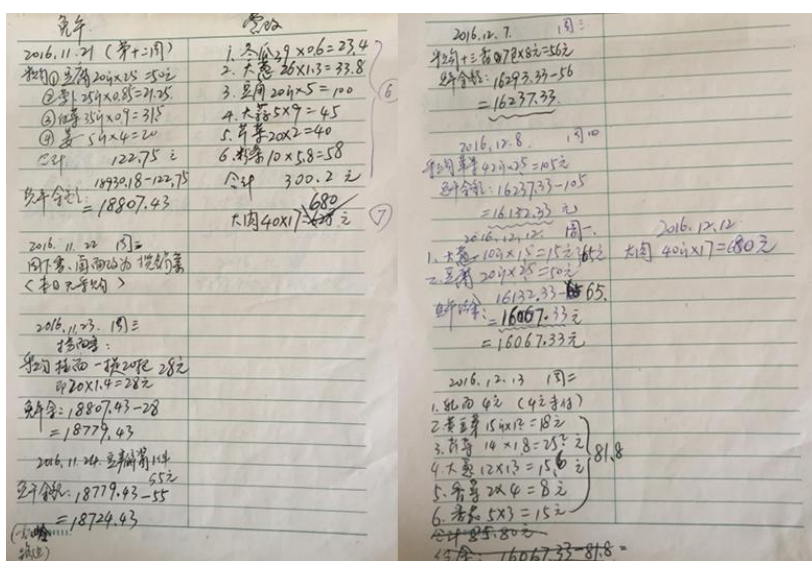 免午
2016.11.21（第十二周）
采购①豆腐20斤×2.5=50元
②25斤×0.85=21.25
③35斤×0.9=31.5
④姜 5斤×4=20
合计 122.75元
18930.18-122.75
免午金额：=18807.43
2016.11.22 周二
因下雪、
2016.11.23. 周三
采购挂面一 28元
即20×1.4=28元
免午余：18807.43-28
=18779.43
2016.11.24.
55元
免午余额：18779.43-55
=18724.43
营改
1.冬瓜39×0.6=23.4
2.大葱26×1.3=33.8
3.豆腐20斤×5=100
4.大蒜5×9=45
5.芹菜20×2=40
6. 10×5.8=58
合计 300.2元
⑥
680
大肉40×17= 元
⑦
2016.12.7. 周三
采购十三香7包×8元=56元
免午余额：16293.33-56
=16237.33
2016.12.8. 周四
采购 42斤×2.5=105元
免午余额：16237.33-105
=16132.33元
2016.12.12. 周一.
1.大葱10斤×1.5=15元 65元
2.豆腐20斤×2.5=50元
16132.33-65.
免午余：=16067.33元
=16067.33元
2016.12.12
大肉 40斤×17=680元
2016.12.13 周二
1. 4元（4元 ）
2.黄豆芽15斤×1.2=18元
3.芹菜 14×1.8=25.2元
4.大葱12×1.3=15.6元
5.香菜2×4=8元
6. 5×3=15元
81.8
合计85.80元
16067.33-81.8=